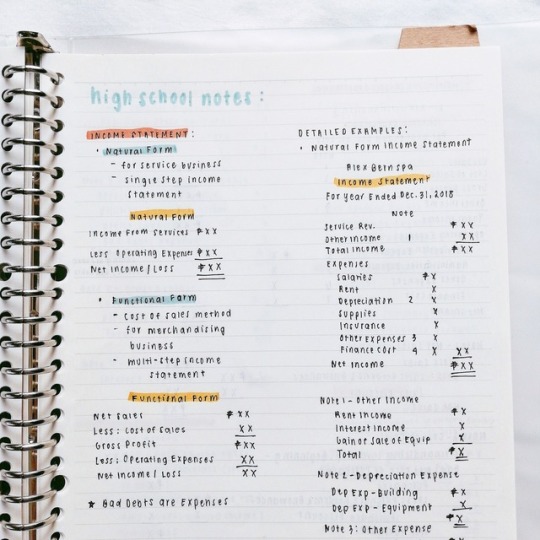 high school notes:
INCOME STATEMENT:
• Natural Form
- for service business
- single step income
statement
Natural Form
Income From Services ₱XX
Less Operating Expenses ₱XX
Net Income/Loss ₱XX
• Functional Form
- cost of sales method
- for merchandising
business
- multi-step income
statement
Functional Form
Net Sales ₱XX
Less: Cost of Sales XX
Gross Profit ₱XX
Less: Operating Expenses XX
Net Income / Loss XX
★ Bad Debts are Expenses
DETAILED EXAMPLES:
• Natural Form Income Statement
Income Statement
For year Ended Dec. 31, 2018
Note
Service Rev. ₱XX
Other Income 1 XX
Total Income ₱XX
Expenses
Salaries ₱X
Rent X
Depreciation 2 X
Supplies X
Insurance X
Other Expenses 3 X
Finance Cost 4 X XX
Net Income ₱XX
Note 1 - Other Income
Rent Income ₱X
Interest Income X
Gain or Sale of Equip X
Total ₱X
Note 2 - Depreciation Expense
Dep Exp - Building ₱X
Dep Exp - Equipment X
₱X
Note 3: Other Expense